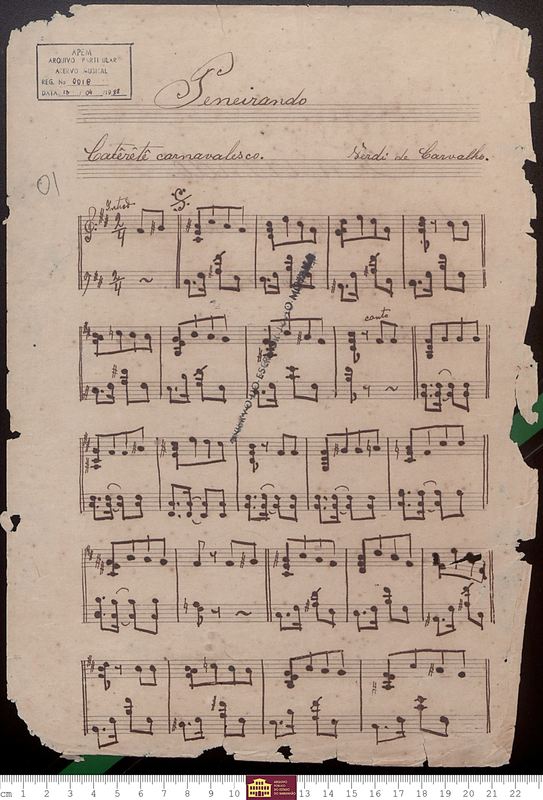 APEM
ARQUIVO PARTICULAR
ACERVO MUSICAL
REG. No 0018
Peneirando
Catêrêtê carnavalesco. Verdi de Carvalho.
01
Introd
2/4
2/4
canto
cm 1 2 3 4 5 6 7 8 9 10 13 14 15 16 17 18 19 20 21 22
ARQUIVO
PÚBLICO
DO ESTADO
DO MARANHÃO